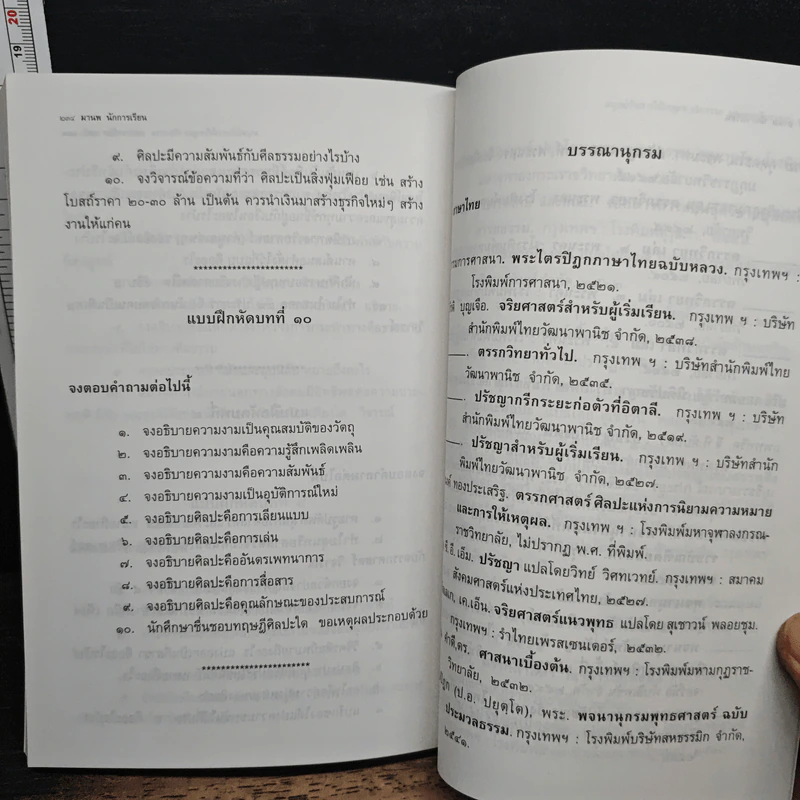 20
19
๒๓๔ มานพ นักการเรียน
๙. ศิลปะมีความสัมพันธ์กับศีลธรรมอย่างไรบ้าง
๑๐. จงวิจารณ์ข้อความที่ว่า ศิลปะเป็นสิ่งฟุ่มเฟือย เช่น สร้าง
โบสถ์ราคา ๒๐-๓๐ ล้าน เป็นต้น ควรนำเงินมาสร้างธุรกิจใหม่ๆ สร้าง
งานให้แก่คน
***********************
แบบฝึกหัดบทที่ ๑๐
จงตอบคำถามต่อไปนี้
๑. จงอธิบายความงามเป็นคุณสมบัติของวัตถุ
๒. จงอธิบายความงามคือความรู้สึกเพลิดเพลิน
๓. จงอธิบายความงามคือความสัมพันธ์
๔. จงอธิบายความงามเป็นอุบัติการณ์ใหม่
๕. จงอธิบายศิลปะคือการเลียนแบบ
๖. จงอธิบายศิลปะคือการเล่น
๗. จงอธิบายศิลปะคืออันตรเพทนาการ
๘. จงอธิบายศิลปะคือการสื่อสาร
๙. จงอธิบายศิลปะคือคุณลักษณะของประสบการณ์
๑๐. นักศึกษาชื่นชอบทฤษฎีศิลปะใด ขอเหตุผลประกอบด้วย
***********************
บรรณานุกรม
ภาษาไทย
รมการศาสนา. พระไตรปิฎกภาษาไทยฉบับหลวง. กรุงเทพฯ :
โรงพิมพ์การศาสนา, ๒๕๒๑.
บุญเจือ. จริยศาสตร์สำหรับผู้เริ่มเรียน. กรุงเทพ ฯ : บริษัท
สำนักพิมพ์ไทยวัฒนาพานิช จำกัด, ๒๕๓๘.
____. ตรรกวิทยาทั่วไป. กรุงเทพ ฯ : บริษัทสำนักพิมพ์ไทย
วัฒนาพานิช จำกัด, ๒๕๓๕.
____. ปรัชญากรีกระยะก่อตัวที่อิตาลี. กรุงเทพ ฯ : บริษัท
สำนักพิมพ์ไทยวัฒนาพานิช จำกัด, ๒๕๑๙.
____. ปรัชญาสำหรับผู้เริ่มเรียน. กรุงเทพ ฯ : บริษัทสำนัก
พิมพ์ไทยวัฒนาพานิช จำกัด, ๒๕๒๗.
ทองประเสริฐ. ตรรกศาสตร์ ศิลปะแห่งการนิยามความหมาย
และการให้เหตุผล. กรุงเทพ ฯ : โรงพิมพ์มหาจุฬาลงกรณ-
ราชวิทยาลัย, ไม่ปรากฏ พ.ศ. ที่พิมพ์.
ซี.อี.เอ็ม. ปรัชญา แปลโดยวิทย์ วิศทเวทย์. กรุงเทพฯ : สมาคม
สังคมศาสตร์แห่งประเทศไทย, ๒๕๒๗.
เค.เอ็น. จริยศาสตร์แนวพุทธ แปลโดย สุเชาวน์ พลอยชุม.
กรุงเทพฯ : รำไทยเพรสเซนเตอร์, ๒๕๓๒.
คำดี,ดร. ศาสนาเบื้องต้น. กรุงเทพฯ : โรงพิมพ์มหามกุฏราช-
วิทยาลัย, ๒๕๓๒.
(ป.อ. ปยุตฺโต), พระ. พจนานุกรมพุทธศาสตร์ ฉบับ
ประมวลธรรม. กรุงเทพฯ : โรงพิมพ์บริษัทสหธรรมิก จำกัด,
๒๕๔๑.